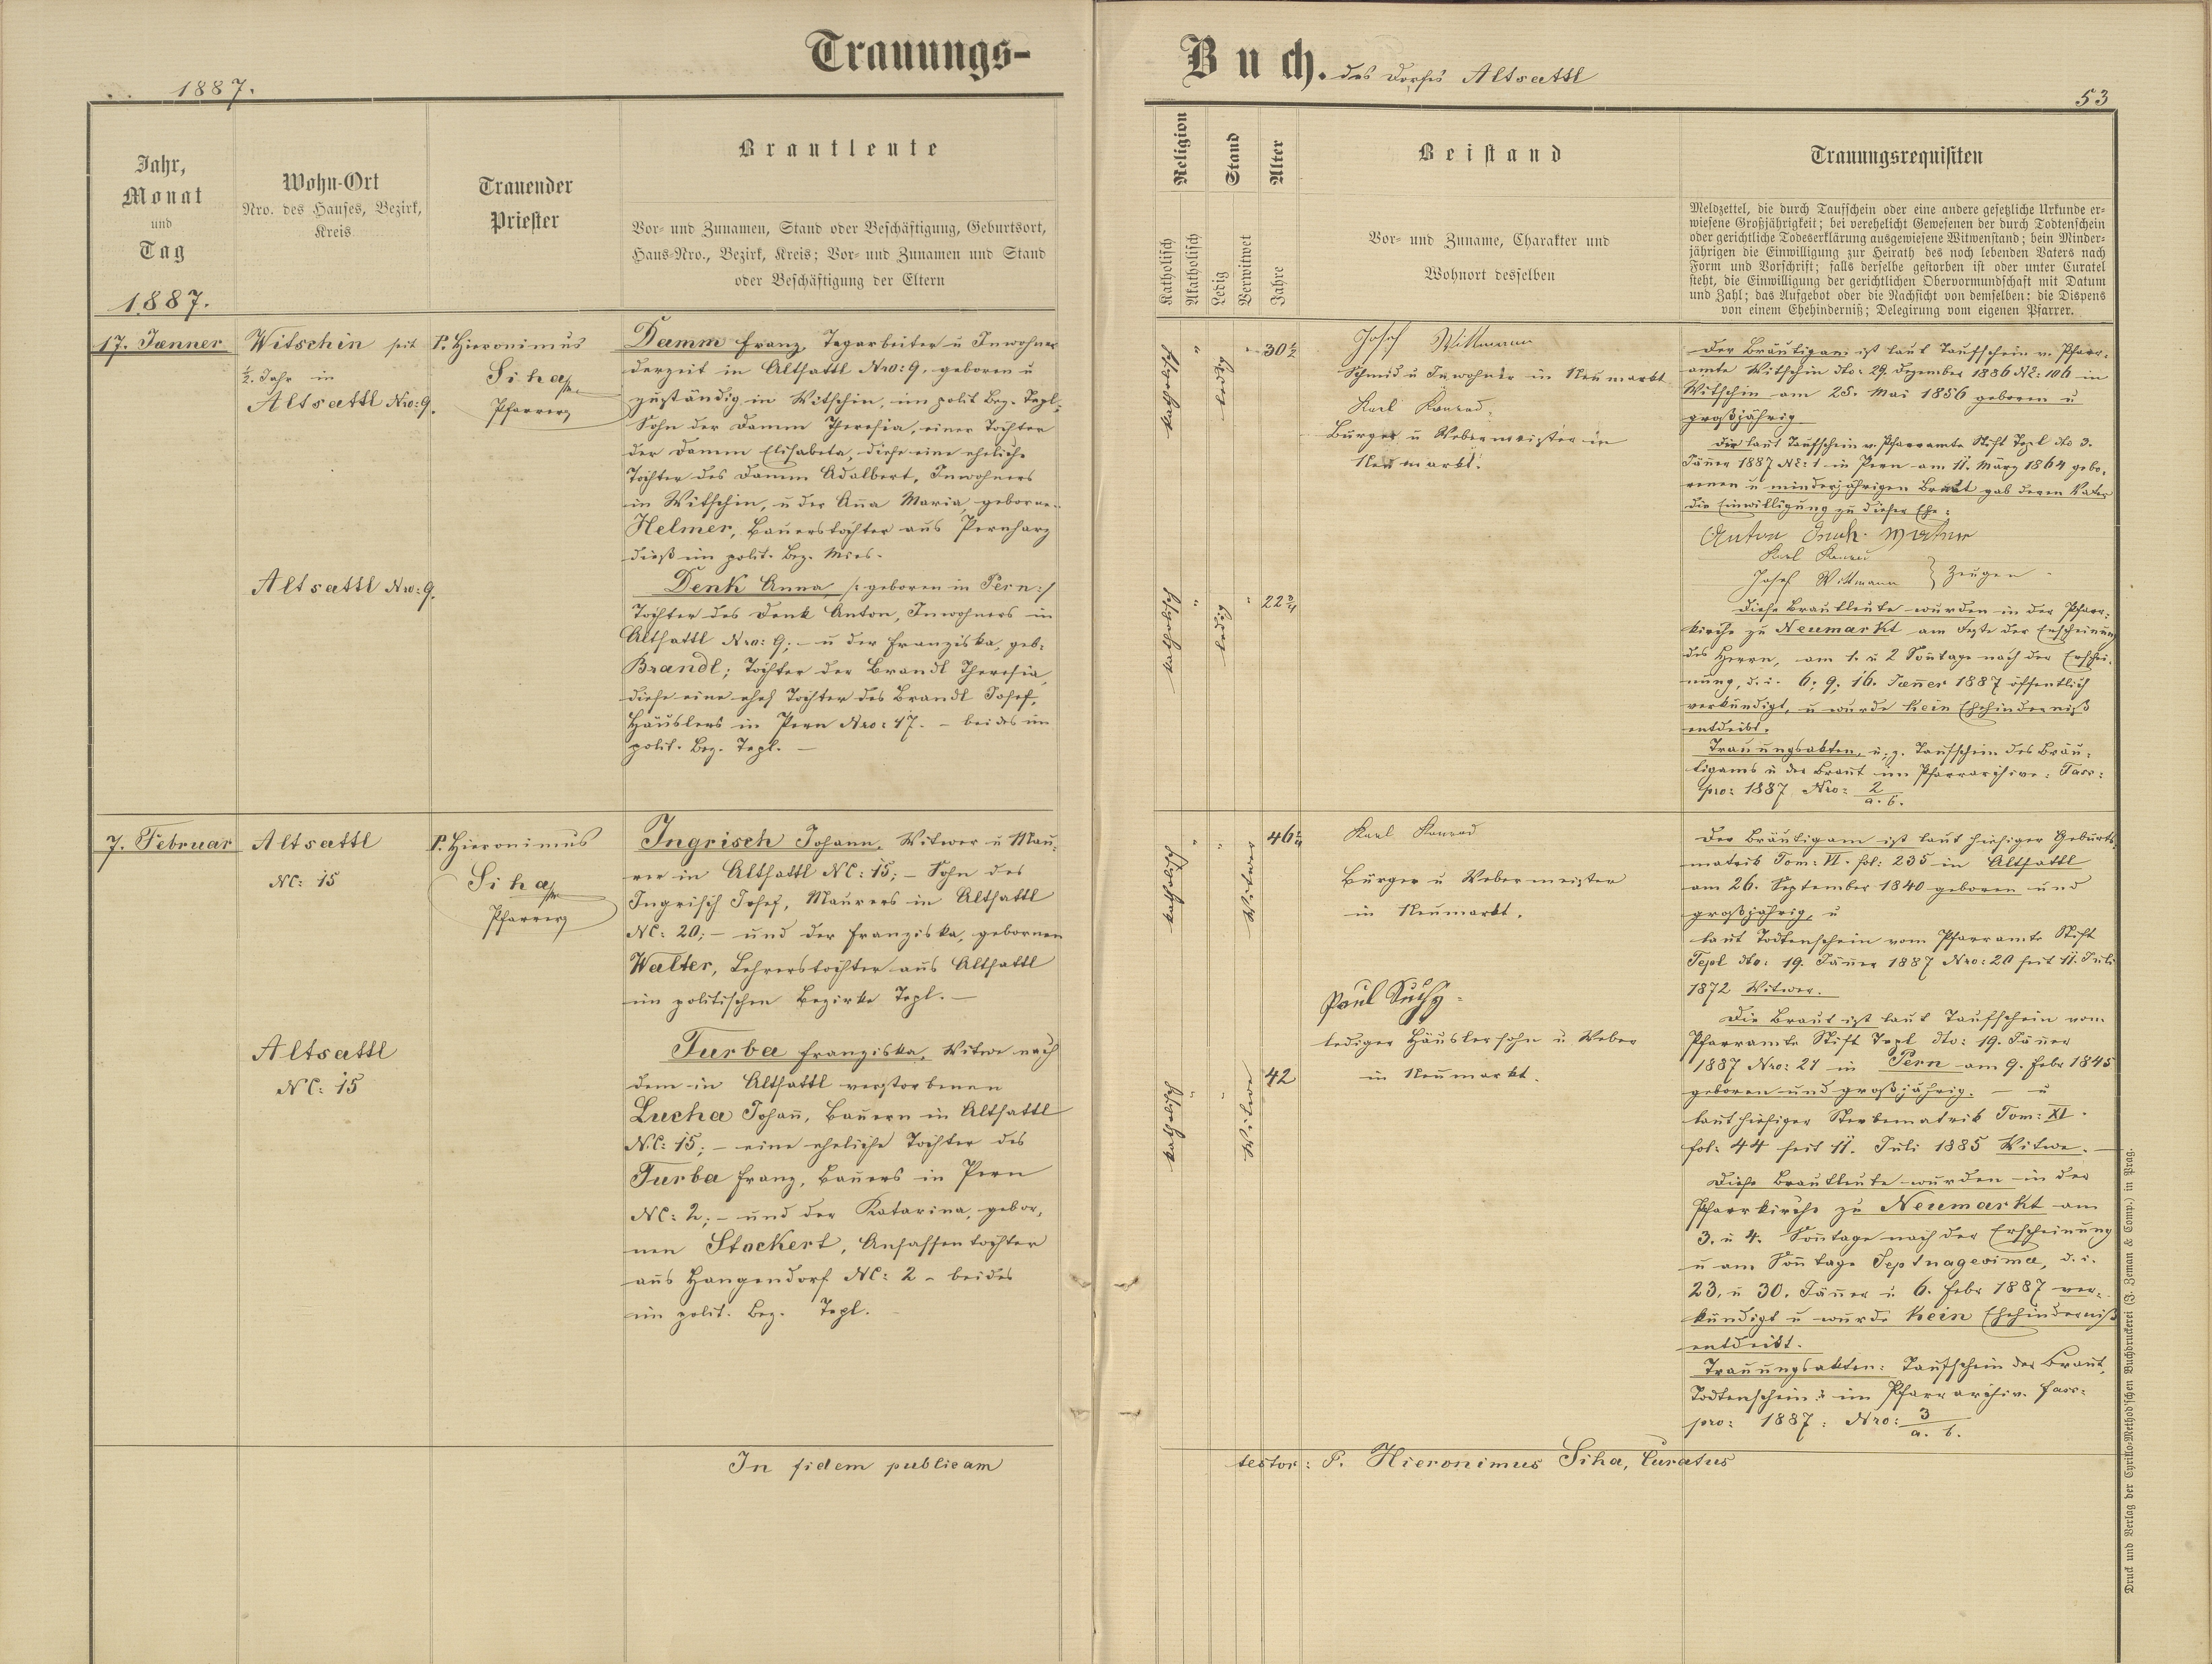 Trauungs-
Buch. des Dorfes Altsattl
1887.
53
Jahr,
Monat
und
Tag
1887.
Wohn-Ort
Nro. des Hauses, Bezirk,
Kreis
Trauender
Priester
Brautleute
Vor- und Zunamen, Stand oder Beschäftigung, Geburtsort,
Haus-Nro., Bezirk, Kreis; Vor- und Zunamen und Stand
oder Beschäftigung der Eltern
Religion
Katholisch
Akatholisch
Stand
Ledig
Verwitwet
Alter
Jahre
Beistand
Vor- und Zuname, Charakter und
Wohnort desselben
Trauungsrequisiten
Meldzettel, die durch Taufschein oder eine andere gesetzliche Urkunde er-
wiesene Großjährigkeit; bei verehelicht Gewesenen der durch Todtenschein
oder gerichtliche Todeserklärung ausgewiesene Witwenstand; bein Minder-
jährigen die Einwilligung zur Heirath des noch lebenden Vaters nach
Form und Vorschrift; falls derselbe gestorben ist oder unter Curatel
steht, die Einwilligung der gerichtlichen Obervormundschaft mit Datum
und Zahl; das Aufgebot oder die Nachsicht von demselben: die Dispens
von einem Ehehinderniß; Delegirung vom eigenen Pfarrer.
17. Jænner
Witschin seit
½. Jahr in
Altsattl Nro: 9.
P. Hieronimus
Siha
Pfarrer
Damm Franz, Tagarbeiter u Inwohner
derzeit in Altsattl Nro: 9. geboren u
zuständig in Witschin, im polit Bez. Tepl,
Sohn der Damm Theresia, einer Tochter
der Damm Elisabeta, diese eine eheliche
Tochter des Damm Adalbert, Inwohners
in Witschin, u der Aña Maria, geborne
Helmer, Bauerstochter aus Pernharz
dieß im polit. Bez. Mies.
Altsattl Nro: 9.
Denk Anna /: geboren in Pern :/
Tochter des Denk Anton, Inwohners in
Altsattl Nro: 9; - u der Franziska, geb:
Brandl; Tochter der Brandl Theresia,
diese eine ehel Tochter des Brandl Josef,
Häuslers in Pern Nro: 17. - beides im
polit. Bez. Tepl. -
katholisch
"
ledig
"
30½
katholisch
"
ledig
"
Josef Wittmann
Schmid u Inwohner in Neumarkt
Karl Konrad,
Bürger u Webermeister in
Neumarkt.
Der Bräutigam ist laut Taufschein v. Pfarr-
amte Witschin dto: 29. Dezember 1886 NE: 106 in
Witschin am 25. Mai 1856 geboren u
großjährig
Der laut Taufschein v. Pfarramte Stift Tepl dto 3.
Jäner 1887 NE: 1 in Pern am 11. März 1864 gebo-
renen u minderjährigen Braut gab deren Vater
die Einwilligung zu dieser Ehe:
Anton
Karl Konrad
Josef Wittmann } Zeugen
Diese Brautleute wurden in der Pfarr-
kirche zu Neumarkt am Feste der Erscheinung
des Herrn, am 1. u 2 Soñtage nach der Erschei-
nung, d. i. 6; 9; 16. Jæner 1887 öffentlich
verkündigt, u wurde kein Ehehinderniß
entdeckt.
Trauungsakten, u. z. Taufschein des Bräu-
tigams u der Braut im Pfarrarchive: Fasc:
pro: 1887 Nro: 2/a. b.
7. Februar
Altsattl
NC: 15
P. Hieronimus
Siha
Pfarrer
Ingrisch Johann, Witwer u Mau-
rer in Altsattl NC: 15; - Sohn des
Ingrisch Josef, Maurers in Altsattl
NC: 20; - und der Franziska, gebornen
Walter, Lehrerstochter aus Altsattl
im politischen Bezirke Tepl. -
Altsattl
NC: 15
Turba Franziska, Witwe nach
dem in Altsattl verstorbenen
Lucha Johañ, Bauern in Altsattl
NC: 15; - eine eheliche Tochter des
Turba Franz, Bauers in Pern
NC: 2; - und der Katarina, gebor-
nen Stockert, Ansassentochter
aus Hangendorf NC: 2 - beides
im polit. Bez. Tepl.
katholisch
"
"
Witwer
katholisch
"
"
Witwe
42
Karl Konrad
Bürger u Webermeister
in Neumarkt.
Paul Suchy
lediger Häuslersohn u Weber
in Neumarkt.
Der Bräutigam ist laut hiesiger Geburts-
matrik Tom: VI. fol: 235 in Altsattl
am 26. September 1840 geboren und
großjährig, u
laut Todtenschein vom Pfarramte Stift
Tepl dto: 19. Jäner 1887 Nro: 20 seit 11. Juli
1872 Witwer.
Die Braut ist laut Taufschein vom
Pfarramte Stift Tepl dto: 19. Jäner
1887 Nro: 21 in Pern am 9. Febr 1845
geboren und großjährig. - u
laut hiesiger Sterbematrik Tom: XI.
fol: 44 seit 11. Juli 1885 Witwe. -
Diese Brautleute wurden in der
Pfarrkirche zu Neumarkt am
3. u 4. Soñtage nach der Erscheinung
u am Soñtage Septuagesima, d. i.
23. u 30. Jäner u 6. Febr 1887 ver-
kündigt u wurde kein Ehehinderniß
entdeckt.
Trauungsakten: Taufschein der Braut,
Todtenschein: im Pfarrarchiv. Fasc:
pro: 1887: Nro: 3/a. b.
In fidem publicam
testor: P. Hieronimus Siha, Curatus
Druck und Verlag der Cyrillo-Method'schen Buchdruckerei (J. Zeman & Comp.) in Prag.